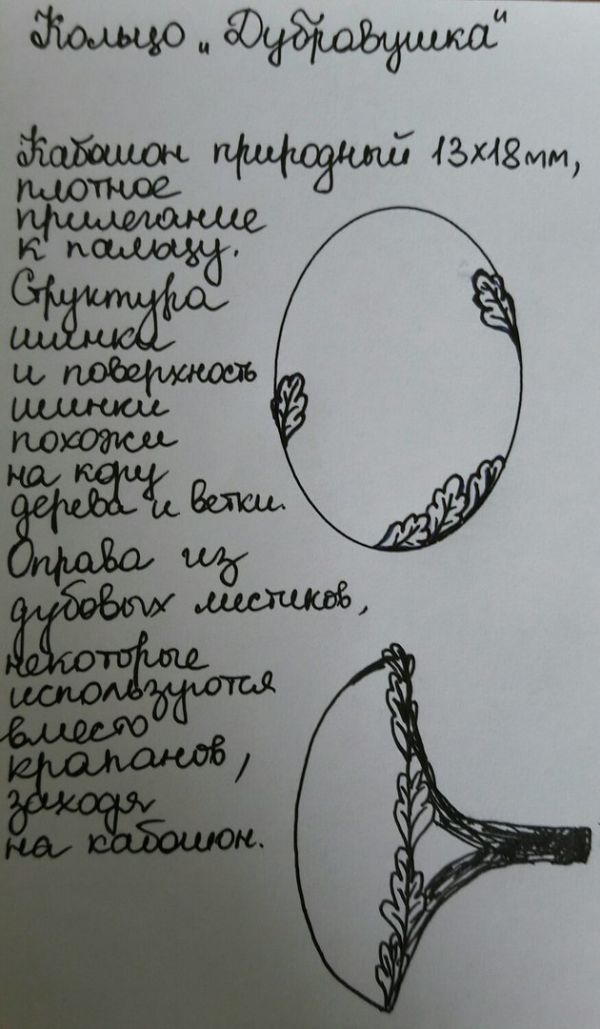 Кольцо „Дубравушка"
Кабошон природный 13х18мм,
плотное
прилегание
к пальцу.
Структура
шинки
и поверхность
шинки
похожи
на кору
дерева и ветки.
Оправа из
дубовых листиков,
некоторые
используются
вместо
крапанов,
заходя
на кабошон.